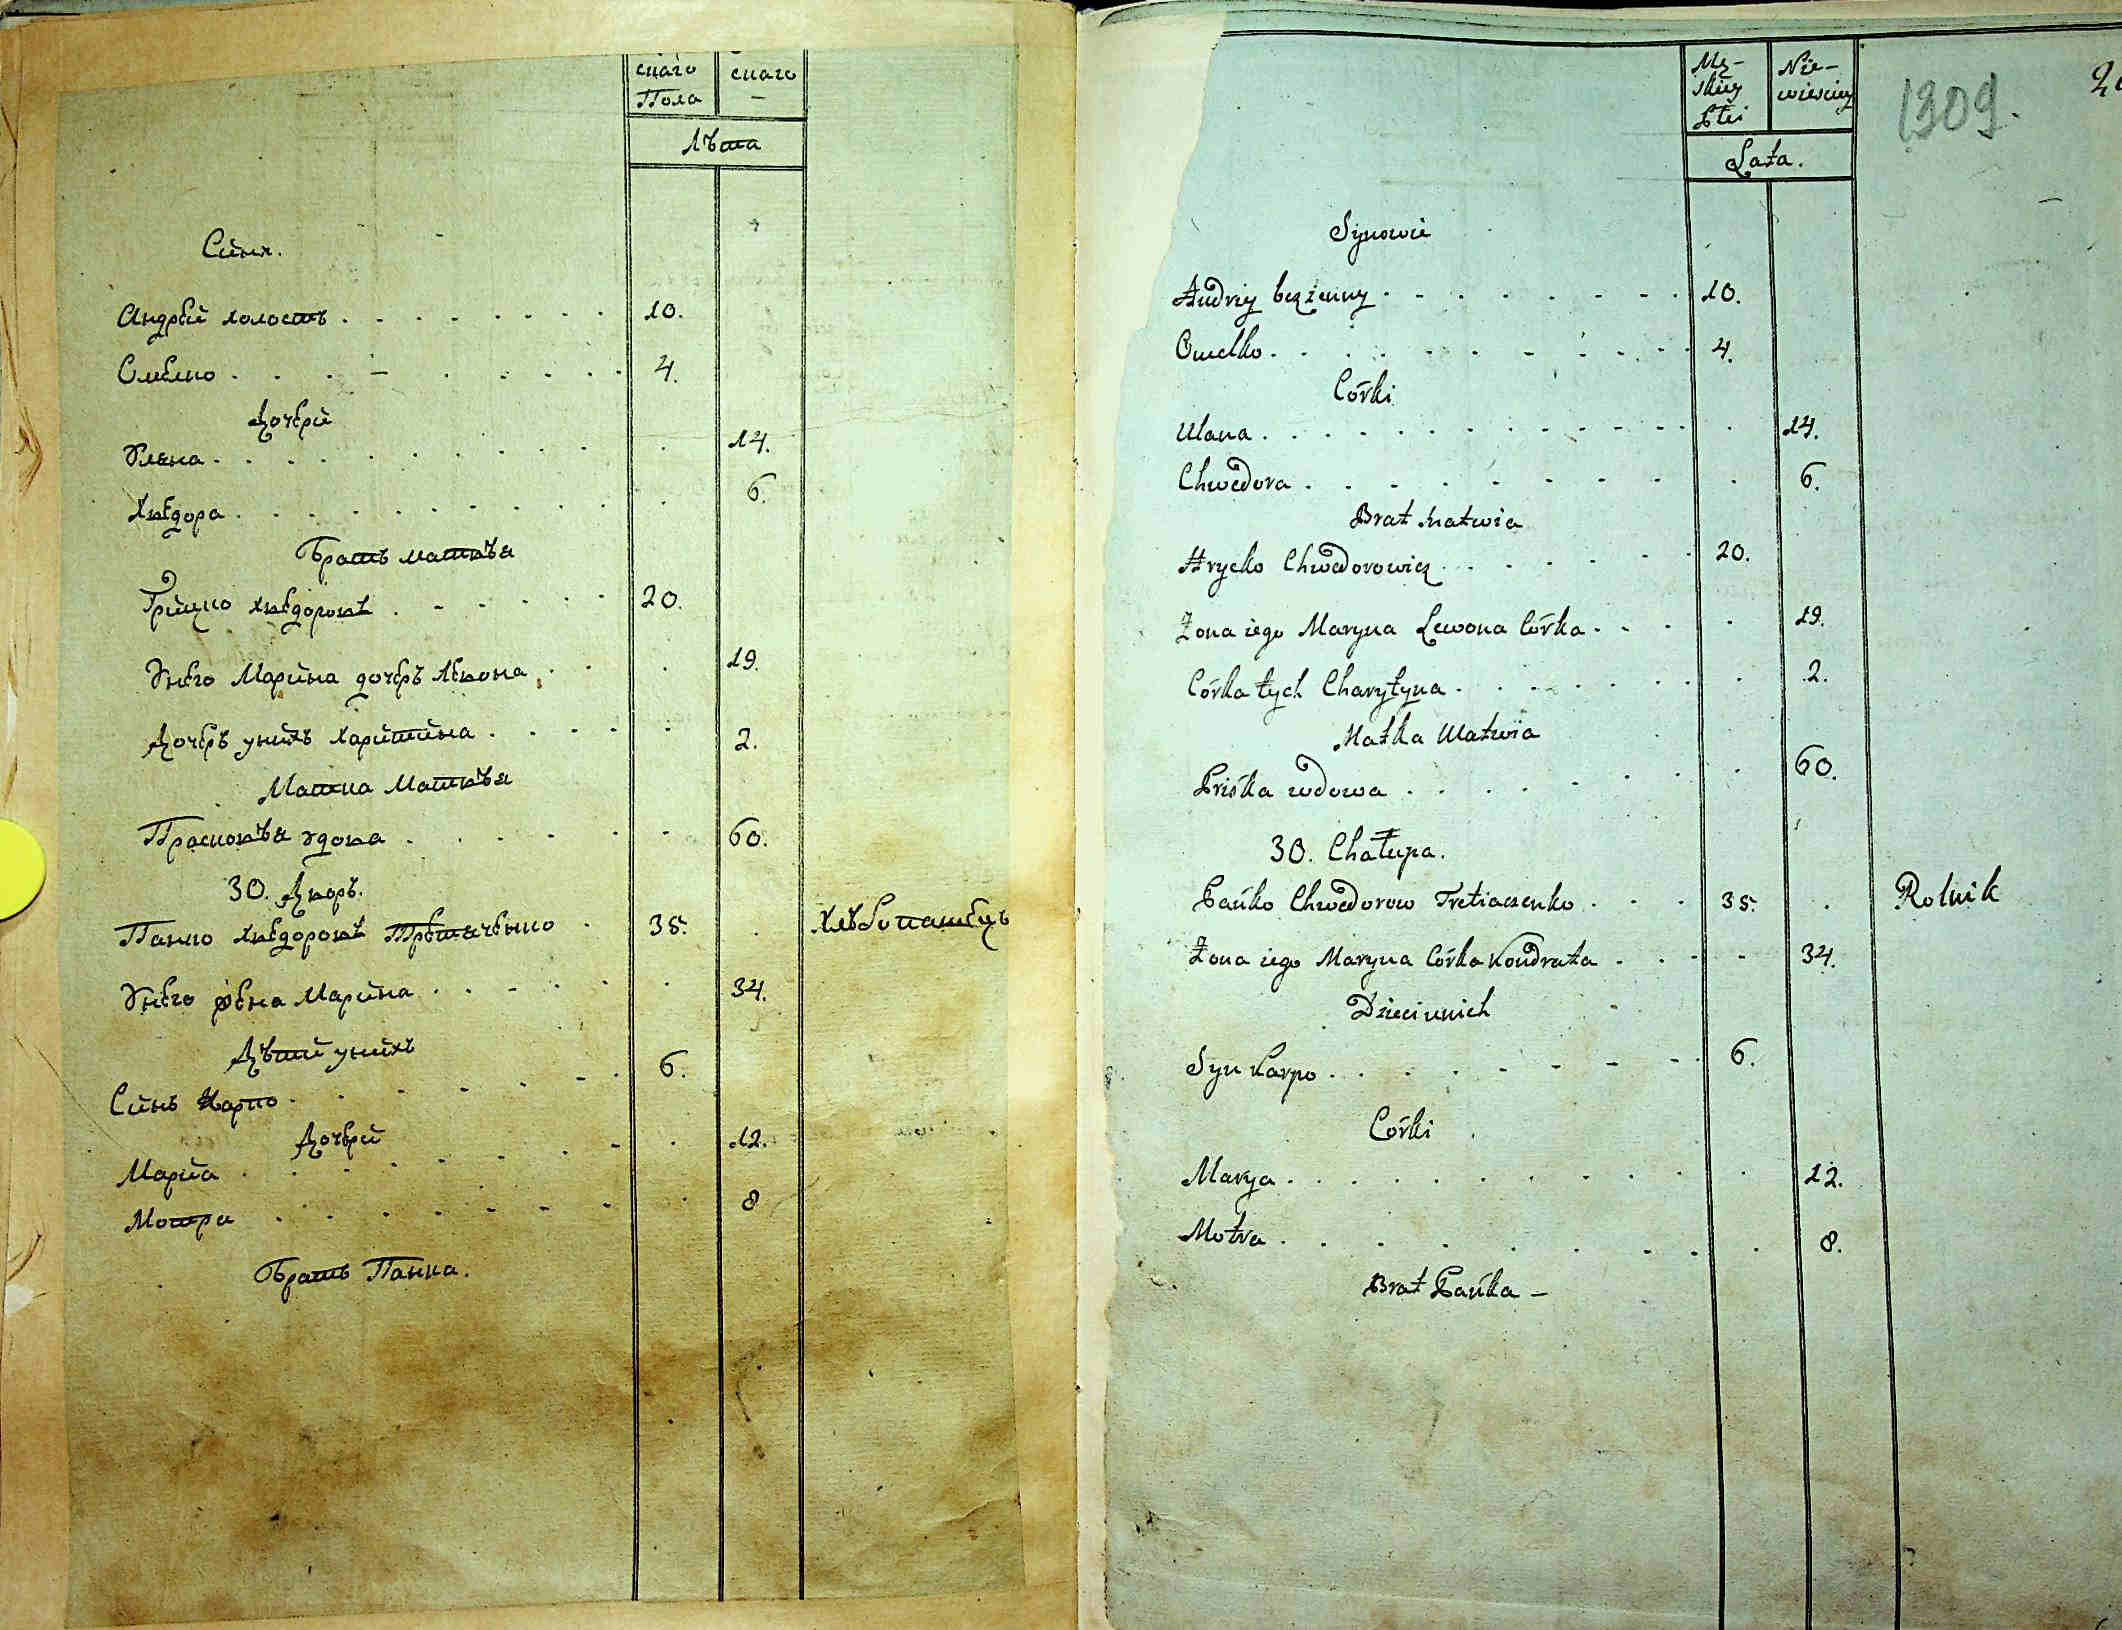 скаго
Пола
скаго
—
Лѣта
Сини.
Андрей холостъ 10.
Омелко 4.
Дочери
Уляна 14.
Хведора 6.
Братъ матвѣя
Грицко хведоровъ 20.
Унего Марина дочеръ Левона 19.
Дочеръ унихъ Харитина 2.
Матка Матвѣя
Прасковѣя удова 60.
30. Дворъ.
Панко хведоровъ Третяченко 35. Хлѣбопашецъ
Унего жена Марина 34.
Дѣти унихъ
Синъ Карпо 6.
Дочери
Мария 12.
Мотря 8
Братъ Панка.
Mę-
skiey
Płci
Nie-
wiesciey
1309.
Lata.
Synowie
Andriy bezżenny 10.
Omelko 4.
Córki
Ulana 14.
Chwedora 6.
Brat Matwia
Hrycko Chwedorowicz 20.
Żona iego Maryna Lewona Córka 19.
Córka tych Charytyna 2.
Matka Matwia
Priśka wdowa 60.
30. Chałupa.
Pańko Chwedorow Tretiaczenko 35. Rolnik
Żona iego Maryna Córka Kondrata 34.
Dzieci unich
Syn Karpo 6.
Córki
Marya 12.
Motra 8.
Brat Pańka —